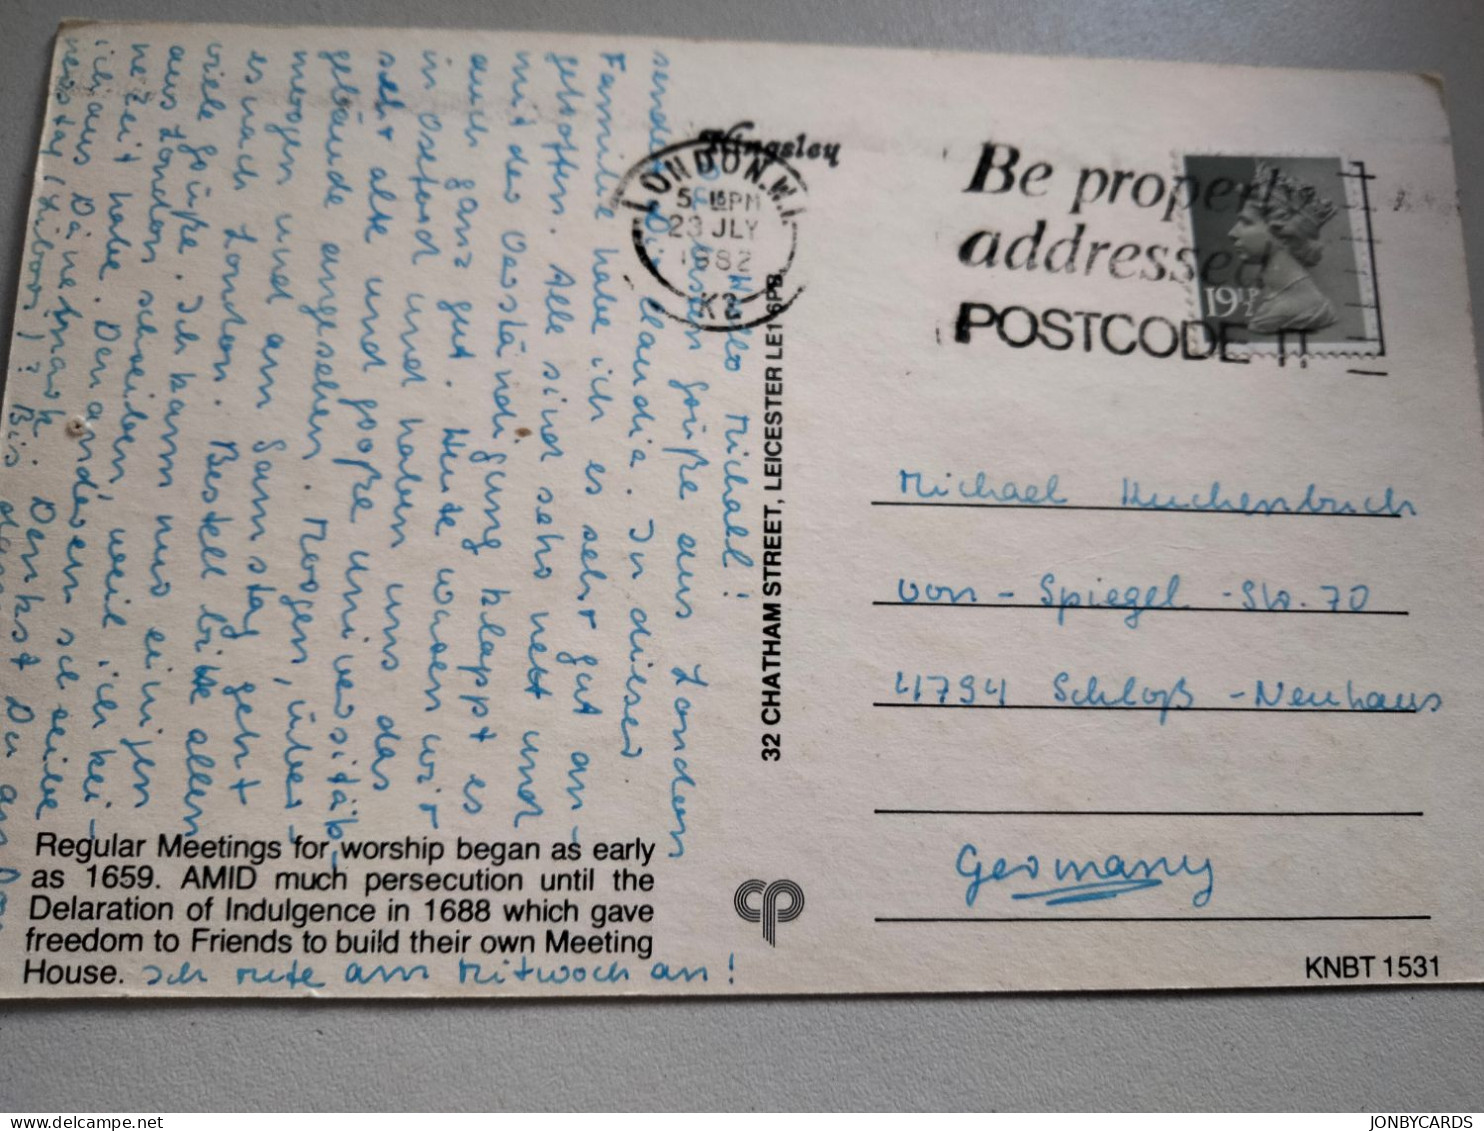 Kingsley
LONDON.W.1.
5 15PM
23 JLY
1982
K2
Be properly
addressed
POSTCODE IT
19½P
Hallo Michael!
Grüße aus London
sendet Dir Claudia. In dieser
Familie habe ich es sehr gut an-
getroffen. Alle sind sehr nett und
mit der Verständigung klappt es
auch ganz gut. Heute waren wir
in Oxford und haben uns das
sehr alte und große Universitäts-
gebäude angesehen. Morgen, über-
morgen und am Samstag geht
es nach London. Bestell bitte allen
viele Grüße. Ich kann nur einigen
aus London schreiben, weil ich kei-
ne Zeit habe. Den anderen schreibe
ich aus Dänemark. Denkst Du am
Bis
32 CHATHAM STREET, LEICESTER LE1 6PB
Michael Kuchenbuch
von-Spiegel-Str. 70
4794 Schloß-Neuhaus
Germany
Regular Meetings for worship began as early
as 1659. AMID much persecution until the
Delaration of Indulgence in 1688 which gave
freedom to Friends to build their own Meeting
House.
Ich rufe am Mittwoch an!
cp
KNBT 1531
JONBYCARDS